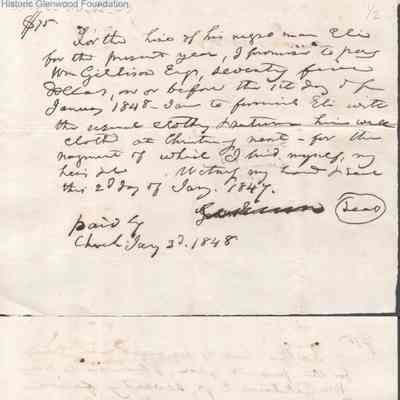 Historic Glenwood Foundation
1/2
$75
For the hire of his negro man Eli
for the present year, I promise to pay
Wm Gillison Esqr, seventy five
Dollars, on or before the 1st day of
January 1848. I am to furnish Eli with
the usual clothing & return him well
clothd at Christmas next - for the
payment of which I bind myself, my
heirs &c Witness my hand & seal
this 2d day of Jany. 1847.
Seal
paid by
Check Jany 3d. 1848